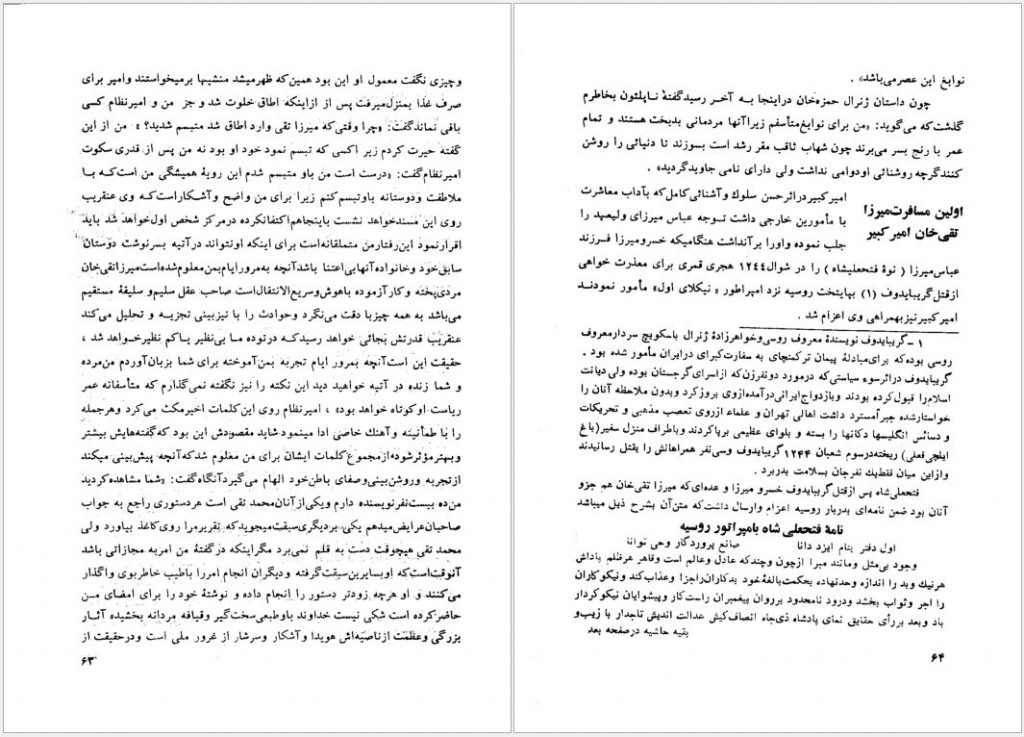 وچیزی نگفت معمول او این بود همین‌که ظهرمیشد منشیها برمیخواستند وامیر برای
صرف غذا بمنزل‌میرفت پس از ازاینکه اطاق خلوت شد و جز من و امیرنظام کسی
باقی نماندگفت: «چرا وقتی‌که میرزا تقی وارد اطاق شد متبسم شدید؟» من از این
گفته حیرت کردم زیر اکسی که تبسم نمود خود او بود نه من پس از قدری سکوت
امیرنظام‌گفت: «درست است من باو متبسم شدم این رویهٔ همیشگی من است‌که بـا
ملاطفت و دوستانه باوتبسم‌کنم زیرا برای من واضح وآشکاراست‌که وی عنقریب
روی این مسندخواهد نشست باینجاهم‌اکتفانکرده درمرکز شخص اول‌خواهد شد باید
اقرارنمود این‌رفتارمن متملقانه‌است برای اینکه اونتواند درآتیه بسرنوشت دوستان
سابق‌خود وخانواده‌آنهابی‌اعتنا باشدآنچه به‌مرورایام‌بمن‌معلوم‌شده‌است‌میرزاتقی‌خان
مردی‌پخته وکارآزموده باهوش‌وسریع‌الانتقال‌است صاحب عقل سلیم‌و سلیقهٔ مستقیم
می‌باشد به همه چیزبا دقت می‌نگرد وحوادث را با تیزبینی تجزیـه و تحلیل می‌کند
عنقریب قدرتش بجائی خواهد رسیدکـه درتوده ما بی‌نظیر یاکم نظیرخواهـد شد ،
حقیقت این است‌آنچه بمرور ایام تجربه بمن‌آموخته برای شما بزبان‌آوردم من‌مرده
و شما زنده در آتیه خواهید دید این نکته را نیز نگفته نمی‌گذارم که متأسفانه عمر
ریاست اوکوتاه خواهد بود» ، امیرنظام روی این‌کلمات اخیرمکث می‌کرد وهرجمله
را با طمأنینه وآهنك خاصی ادا مینمود شاید مقصودش این بود که‌گفته‌هایش بیشتر
وبهترمؤثرشودازمجموع‌کلمات ایشان برای من معلوم شدکه‌آنچه پیش‌بینی میکند
ازتجربه وروشن‌بینی‌وصفای باطن‌خود الهام می‌گیردآنگاه‌گفت: «شما مشاهده‌کردید
من‌ده بیست‌نفرنویسنده دارم ویکی‌ازآنان‌محمد تقی است هردستوری راجع به جواب
صاحبان‌عرایض‌میدهم یکی بردیگری‌سبقت‌میجویدکه تقریرمرا روی‌کاغذ بیاورد ولی
محمد تقی هیچوقت دست به قلم نمی‌برد مگراینکه درگفتهٔ من امربه مجازاتی باشد
آنوقت‌است‌که اوبسایرین‌سبقت‌گرفته ودیگران انجام امررا باطیب خاطربوی واگذار
می‌کنند و او هرچه زودتر دستور را انجام داده و نوشتهٔ خود را برای امضای مـن
حاضرکرده است شکی نیست خداوند باوطبعی‌سخت‌گیر وقیافه مردانه بخشیده آثـار
بزرگی وعظمت ازناصیه‌اش هویدا وآشکار وسرشار از غرور ملی است ودرحقیقت از
۶۳
نوابغ این عصرمی‌باشد» .
چون داستان ژنرال حمزه‌خان دراینجا بـه آخـر رسیدگفتهٔ نـاپلئون بخاطرم
گذشت‌که می‌گوید: «من برای نوابغ‌متأسفم زیراآنها مردمانی بدبخت هستند و تمام
عمر با رنج بسر می‌برند چون شهاب ثاقب مقر رشد است بسوزند تا دنیائی را روشن
کنندگرچه روشنائی اودوامی نداشت ولی دارای نامی جاویدگردید» .
اولین مسافرت‌میرزا
تقی‌خان امیرکبیر
امیرکبیردراثرحسن سلوك وآشنائی کامل‌که بآداب معاشرت
با مأمورین خارجی داشت تـوجه عباس میرزای ولیعهد را
جلب نموده واورا برآنداشت هنگامیکه خسرومیرزا فـرزند
عباس‌میرزا ( نوهٔ فتحعلیشاه ) را در شوال۱۲۴۴ هجری قمری برای معذرت خواهی
ازقتل‌گریبایدوف (۱) بپایتخت روسیه نزد امپراطور « نیکلای اول» مأمور نمودنـد
امیرکبیرنیزبهمراهی وی اعزام شد .
۱ – گریبایدوف نویسندهٔ معروف روسی‌وخواهرزادهٔ ژنرال باسکویچ سردارمعروف
روسی بوده‌که برای‌مبادلهٔ پیمان ترکمنچای به سفارت‌کبرای درایران مأمور شده بود .
گریبایدوف دراثرسوء سیاستی‌که درمورد دونفرزن‌که ازاسرای‌گرجستان بوده ولی‌دیانت
اسلام‌را قبول‌کرده بودند وبازدواج‌ایرانی‌درآمده‌ازوی بروزکرد وبدون ملاحظه آنان را
خواستارشده جبرآمسترد داشت اهالی تهران و علماء ازروی تعصب مذهبی و تحریکات
و دسائس انگلیسها دکانها را بسته و بلوای عظیمی برپاکردند وباطراف منزل سفیر(باغ
ایلچی‌فعلی) ریخته‌درسوم شعبان ۱۲۴۴گریبایدوف وسی‌نفر همراهانش را بقتل رسانیدند
وازاین میان فقط‌یك نفرجان بسلامت بدربرد .
فتحعلی‌شاه پس ازقتل‌گریبایدوف خسرو میرزا و عده‌ای‌که میرزا تقی‌خان هم جزو
آنان بود ضمن نامه‌ای بدربار روسیه اعزام وارسال داشت‌که متن‌آن بشرح ذیل میباشد
نامهٔ فتحعلی شاه بامپراتور روسیه
اول دفتر بنام ایزد دانا صانع پروردگار وحی توانا
وجود بی‌مثل ومانند مبرا ازچون وچندکه عادل وعالم است وقاهر هرظلم پاداش
هرنیك وبد را اندازه وحدنهاده بحکمت‌بالغهٔ‌خود بدکاران‌رازجرا وعذاب‌کند ونیکوکاران
را اجر وثواب بخشد ودرود نامحدود برروان پیغمبران راست‌کار وپیشوایان نیکوکردار
باد وبعد بررأی حقایق نمای پادشاه ذی‌جاه انصاف‌کیش عدالت اندیش تاجدار با زیب‌و
بقیه حاشیه درصفحه بعد
۶۴